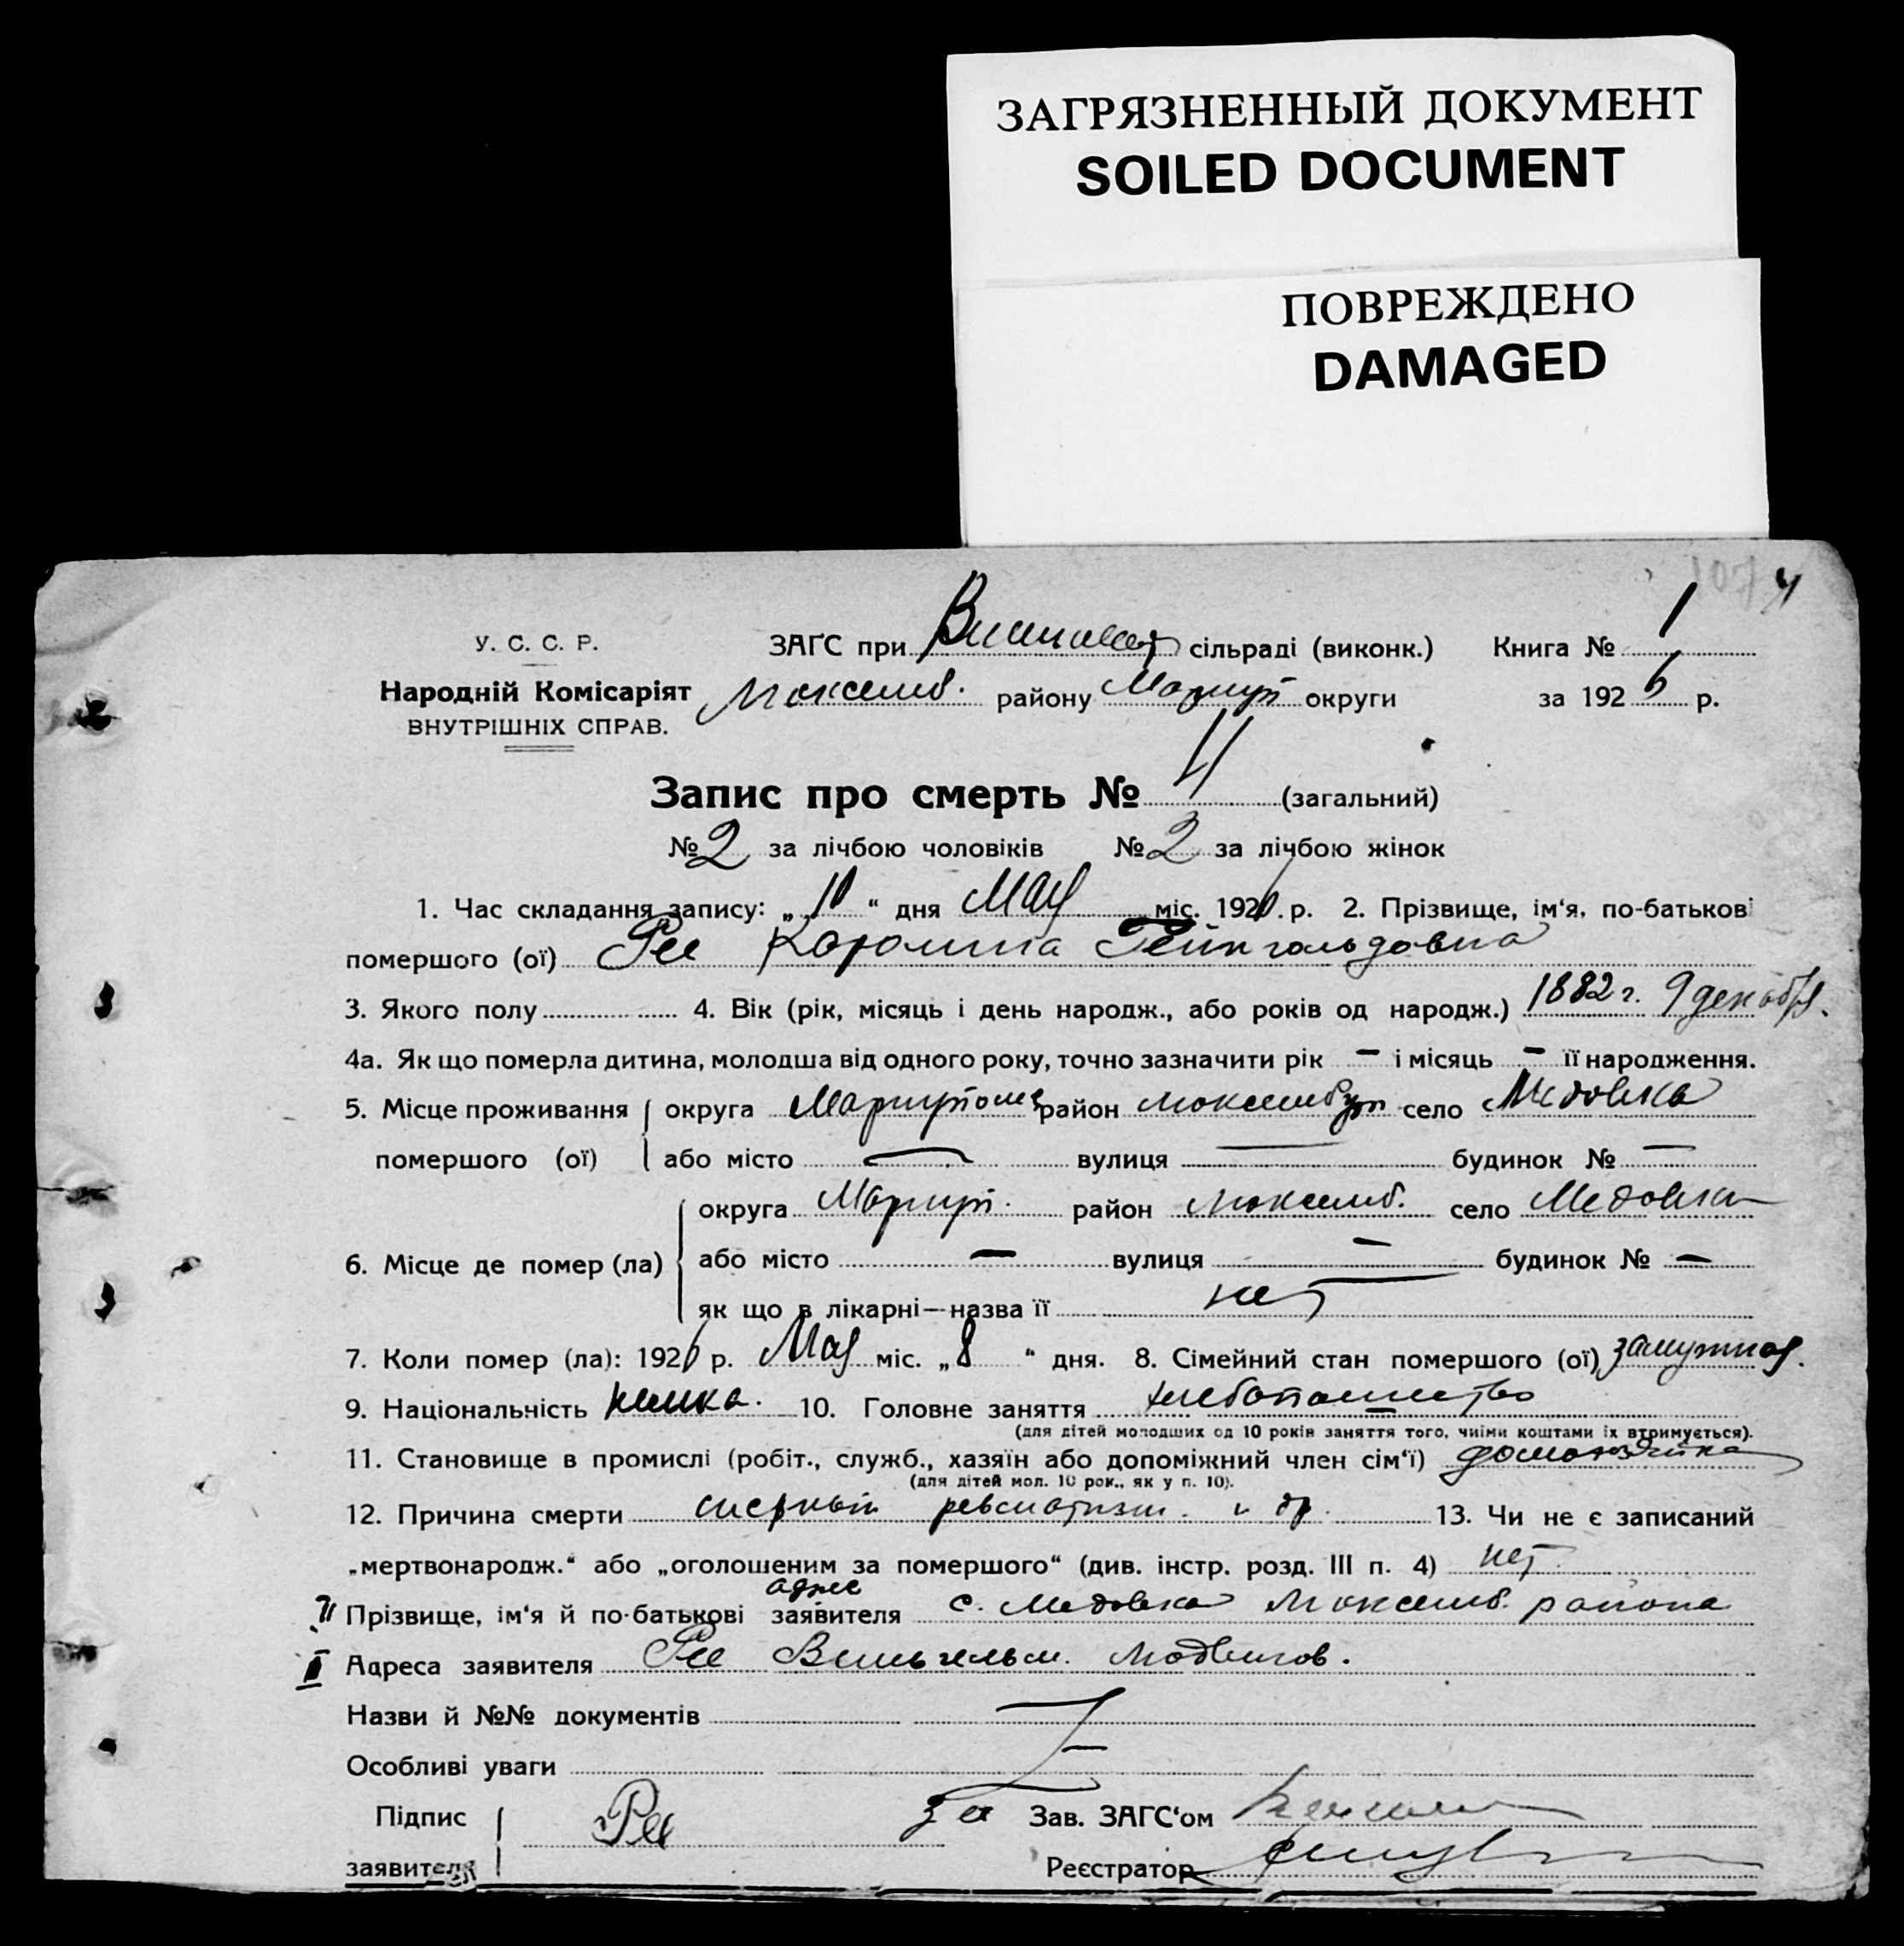 ЗАГРЯЗНЕННЫЙ ДОКУМЕНТ
SOILED DOCUMENT
ПОВРЕЖДЕНО
DAMAGED
107 4
У. С. С. Р. ЗАГС при сільраді (виконк.) Книга № 1
Народній Комісаріят Люксемб. району Мариуп округи за 1926 р.
ВНУТРІШНІХ СПРАВ.
Запис про смерть № 4 (загальний)
№ 2 за лічбою чоловіків № 2 за лічбою жінок
1. Час складання запису: „10“ дня Мая міс. 1926 р. 2. Прізвище, ім‘я, по-батькові
помершого (ої) Рее Каролина Рейнгольдовна
3. Якого полу 4. Вік (рік, місяць і день народж., або років од народж.) 1882 г. 9 декабря.
4а. Як що померла дитина, молодша від одного року, точно зазначити рік – і місяць – її народження.
5. Місце проживання округа Мариупольс район Люксембург село Медовка
помершого (ої) або місто — вулиця — будинок № —
округа Мариуп. район Люксемб. село Медовка
6. Місце де помер (ла) або місто — вулиця — будинок № —
як що в лікарні—назва її нет
7. Коли помер (ла): 1926 р. Мая міс. „8“ дня. 8. Сімейний стан помершого (ої) замужняя.
9. Національність немка. 10. Головне заняття хлебопашество
(для дітей молодших од 10 років заняття того, чиїми коштами їх втримується).
11. Становище в промислі (робіт., служб., хазяїн або допоміжний член сім‘ї) домохозяйка
(для дітей мол. 10 рок., як у п. 10).
12. Причина смерти ревматизм. и др. 13. Чи не є записаний
„мертвонародж.“ або „оголошеним за помершого“ (див. інстр. розд. III п. 4) нет.
адрес
II Прізвище, ім‘я й по-батькові заявителя с. Медовка Люксемб. района
I Адреса заявителя Рее Вильгельм. Людвигов.
Назви й №№ документів
Особливі уваги
Підпис Рее За Зав. ЗАГС‘ом
заявителя Реєстратор